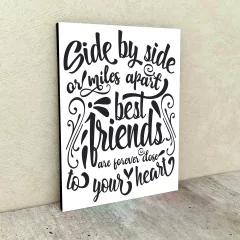 Side by side
or miles apart
best
friends
are forever close
to your heart